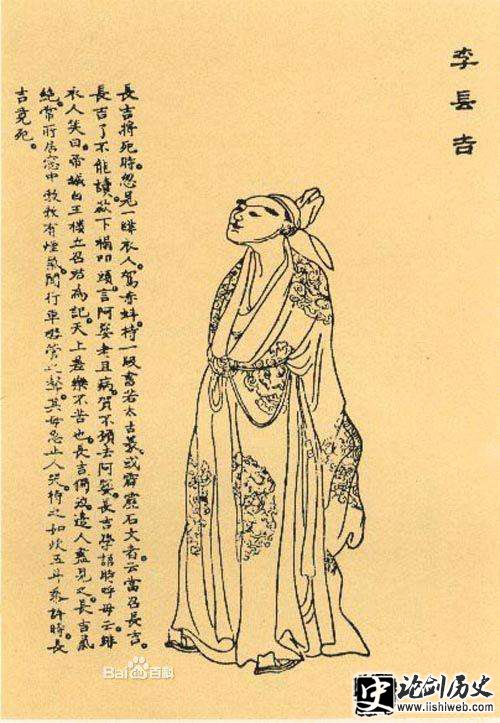 李長吉
長吉將死時。忽見一緋衣人。駕赤虬。持一版。書若太古篆。或霹靂石文者。云當召長吉。
長吉了不能讀。欻下榻叩頭。言阿㜷老且病。賀不願去。阿㜷。長吉學語時呼母云。緋
衣人笑曰。帝城白玉樓。立召君為記。天上差樂。不苦也。長吉獨泣。邊人盡見之。長吉氣
絕。常所居窓中。勃勃有煙氣。聞行車嘒管之聲。其母急止人哭。待之如炊五斗黍許時。長
吉竟死。
Bai百科
史 论剑历史
www.lishiweb.com